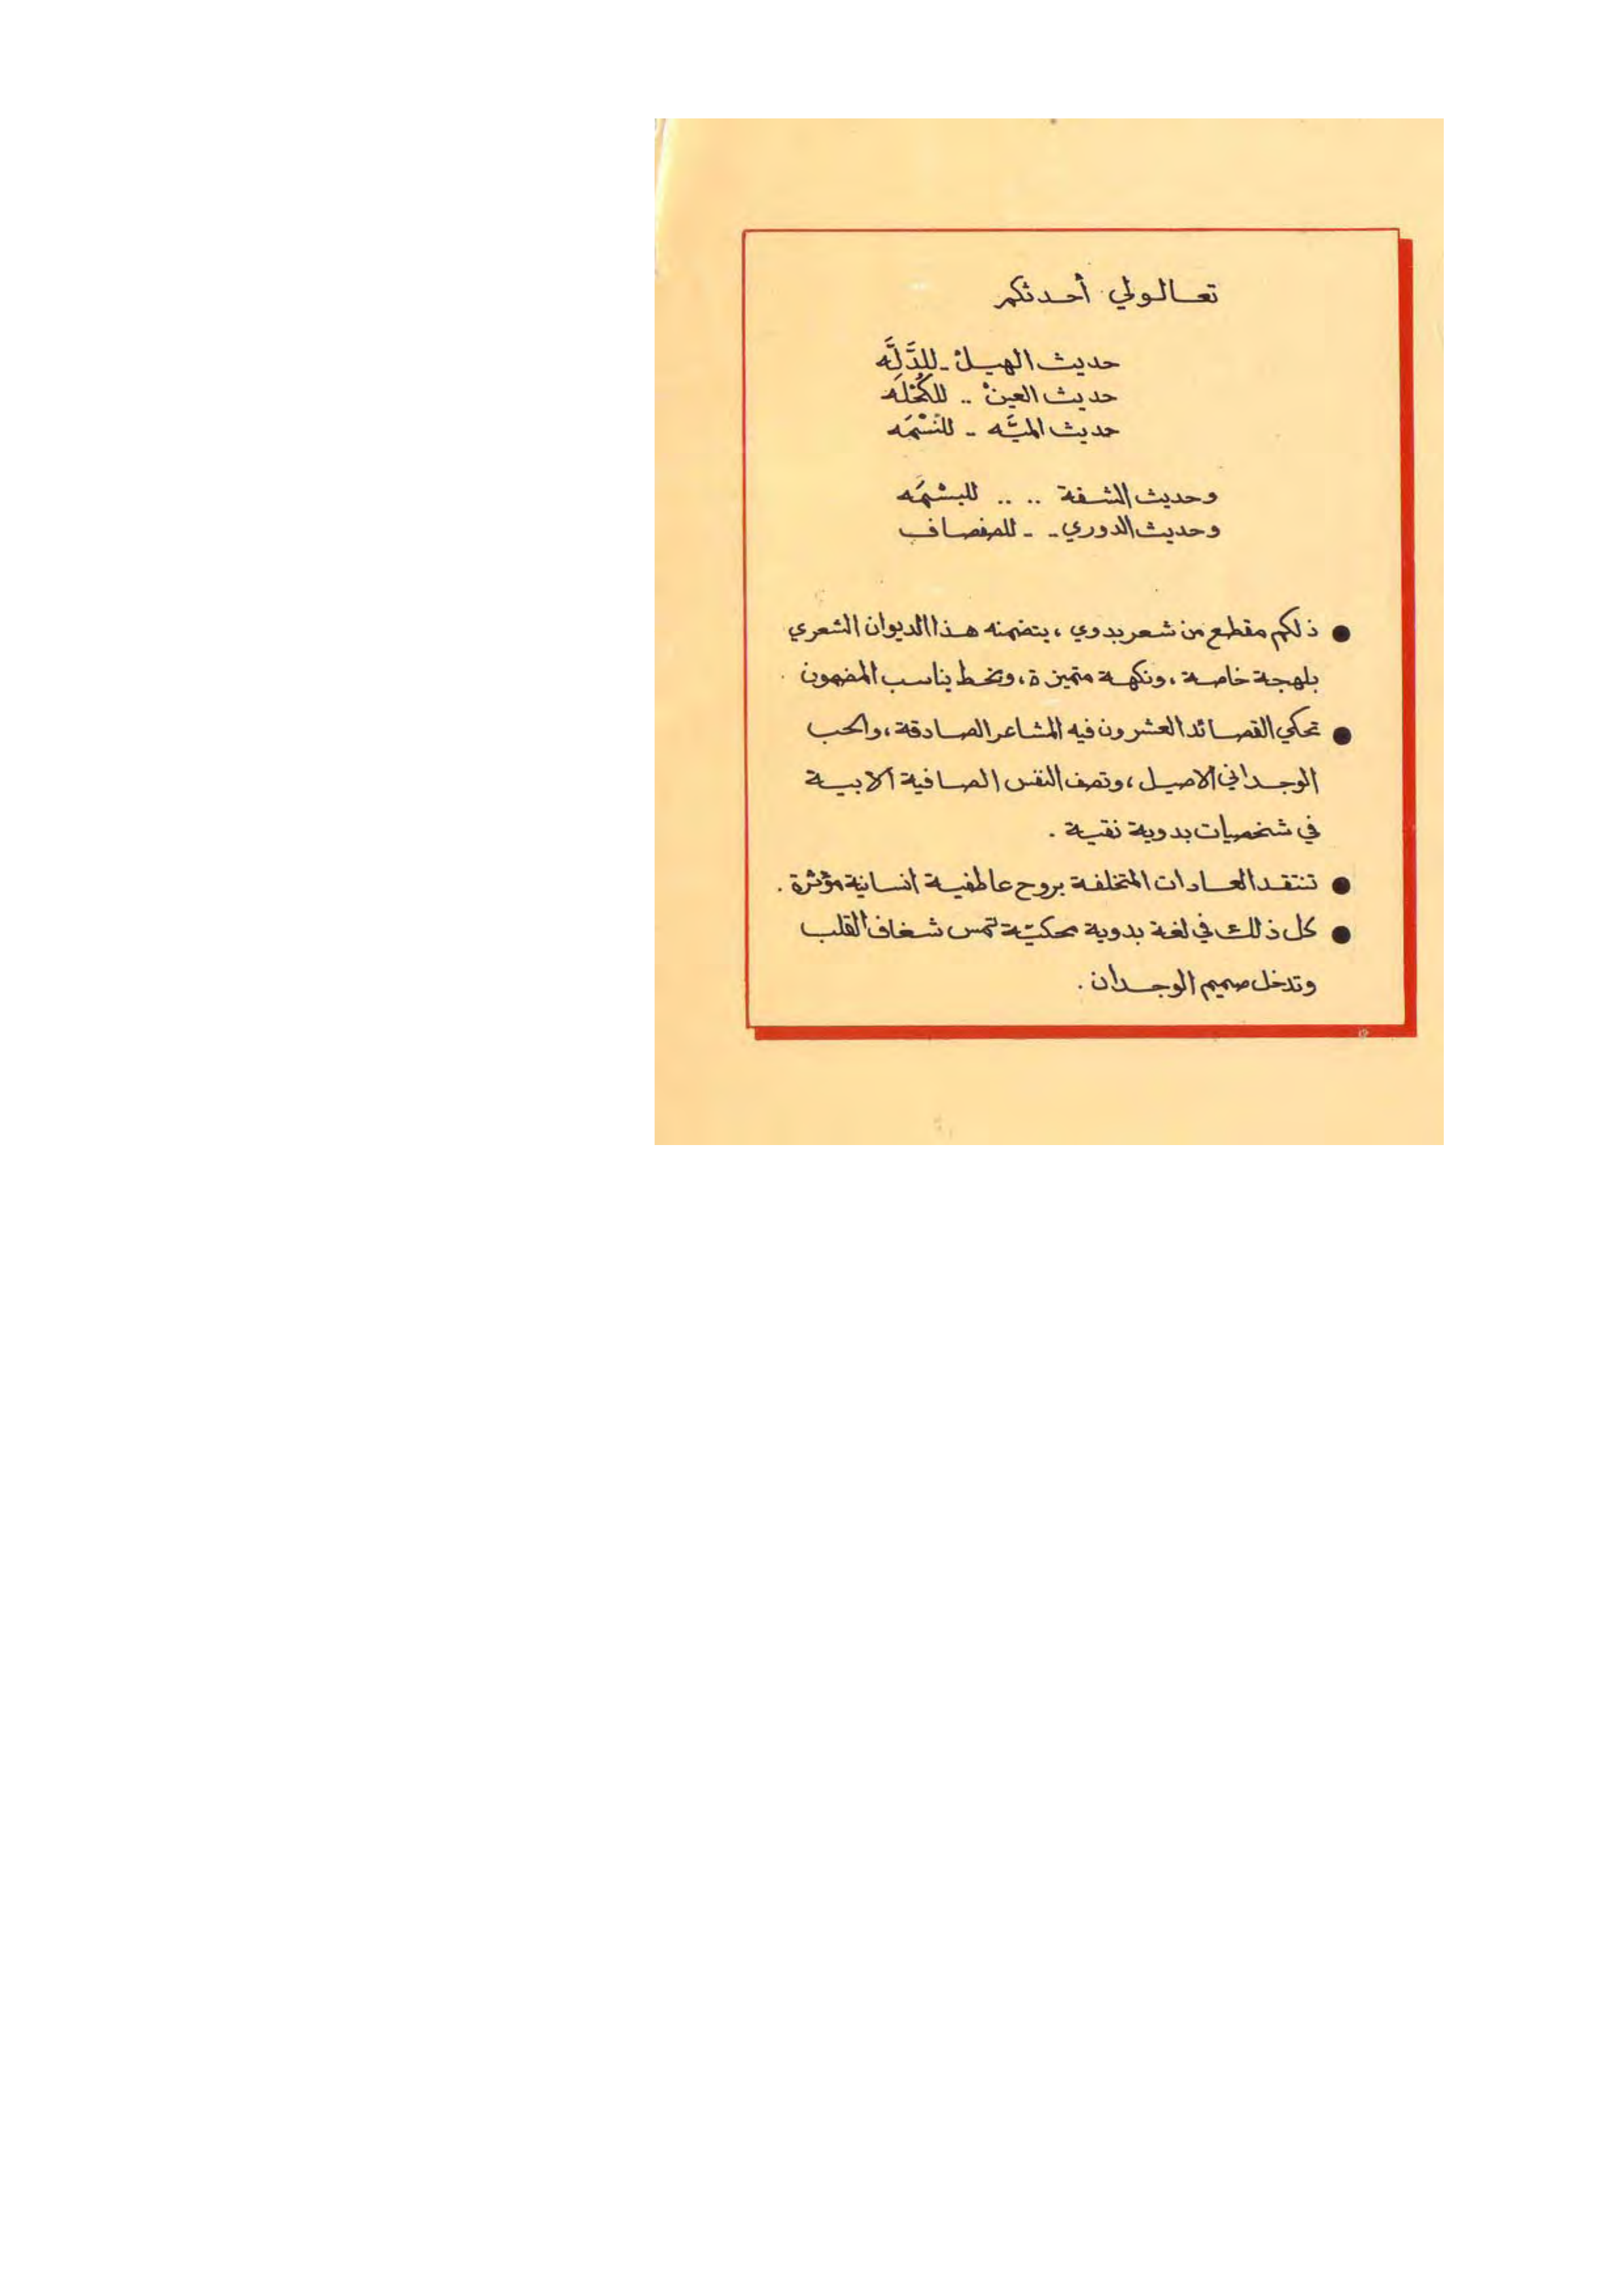 تعالولي أحدثكم
حديث الهيلْ - للدَّلَّه
حديث العينْ .. للكُحْلَه
حديث الميَّه - للنسْمَه
وحديث الشفة .. .. للبسْمَه
وحديث الدوري - - للصفصاف
● ذلكم مقطع من شعر بدوي ، يتضمنه هذا الديوان الشعري
بلهجة خاصة ، ونكهة متميزة ، وبخط يناسب المضمون .
● تحكي القصائد العشرون فيه المشاعر الصادقة ، والحب
الوجداني الاصيل ، وتصف النفس الصافية الابية
في شخصيات بدوية نقية .
● تنتقد العادات المتخلفة بروح عاطفية انسانية مؤثرة .
● كل ذلك في لغة بدوية محكيّة تمس شغاف القلب
وتدخل صميم الوجدان .